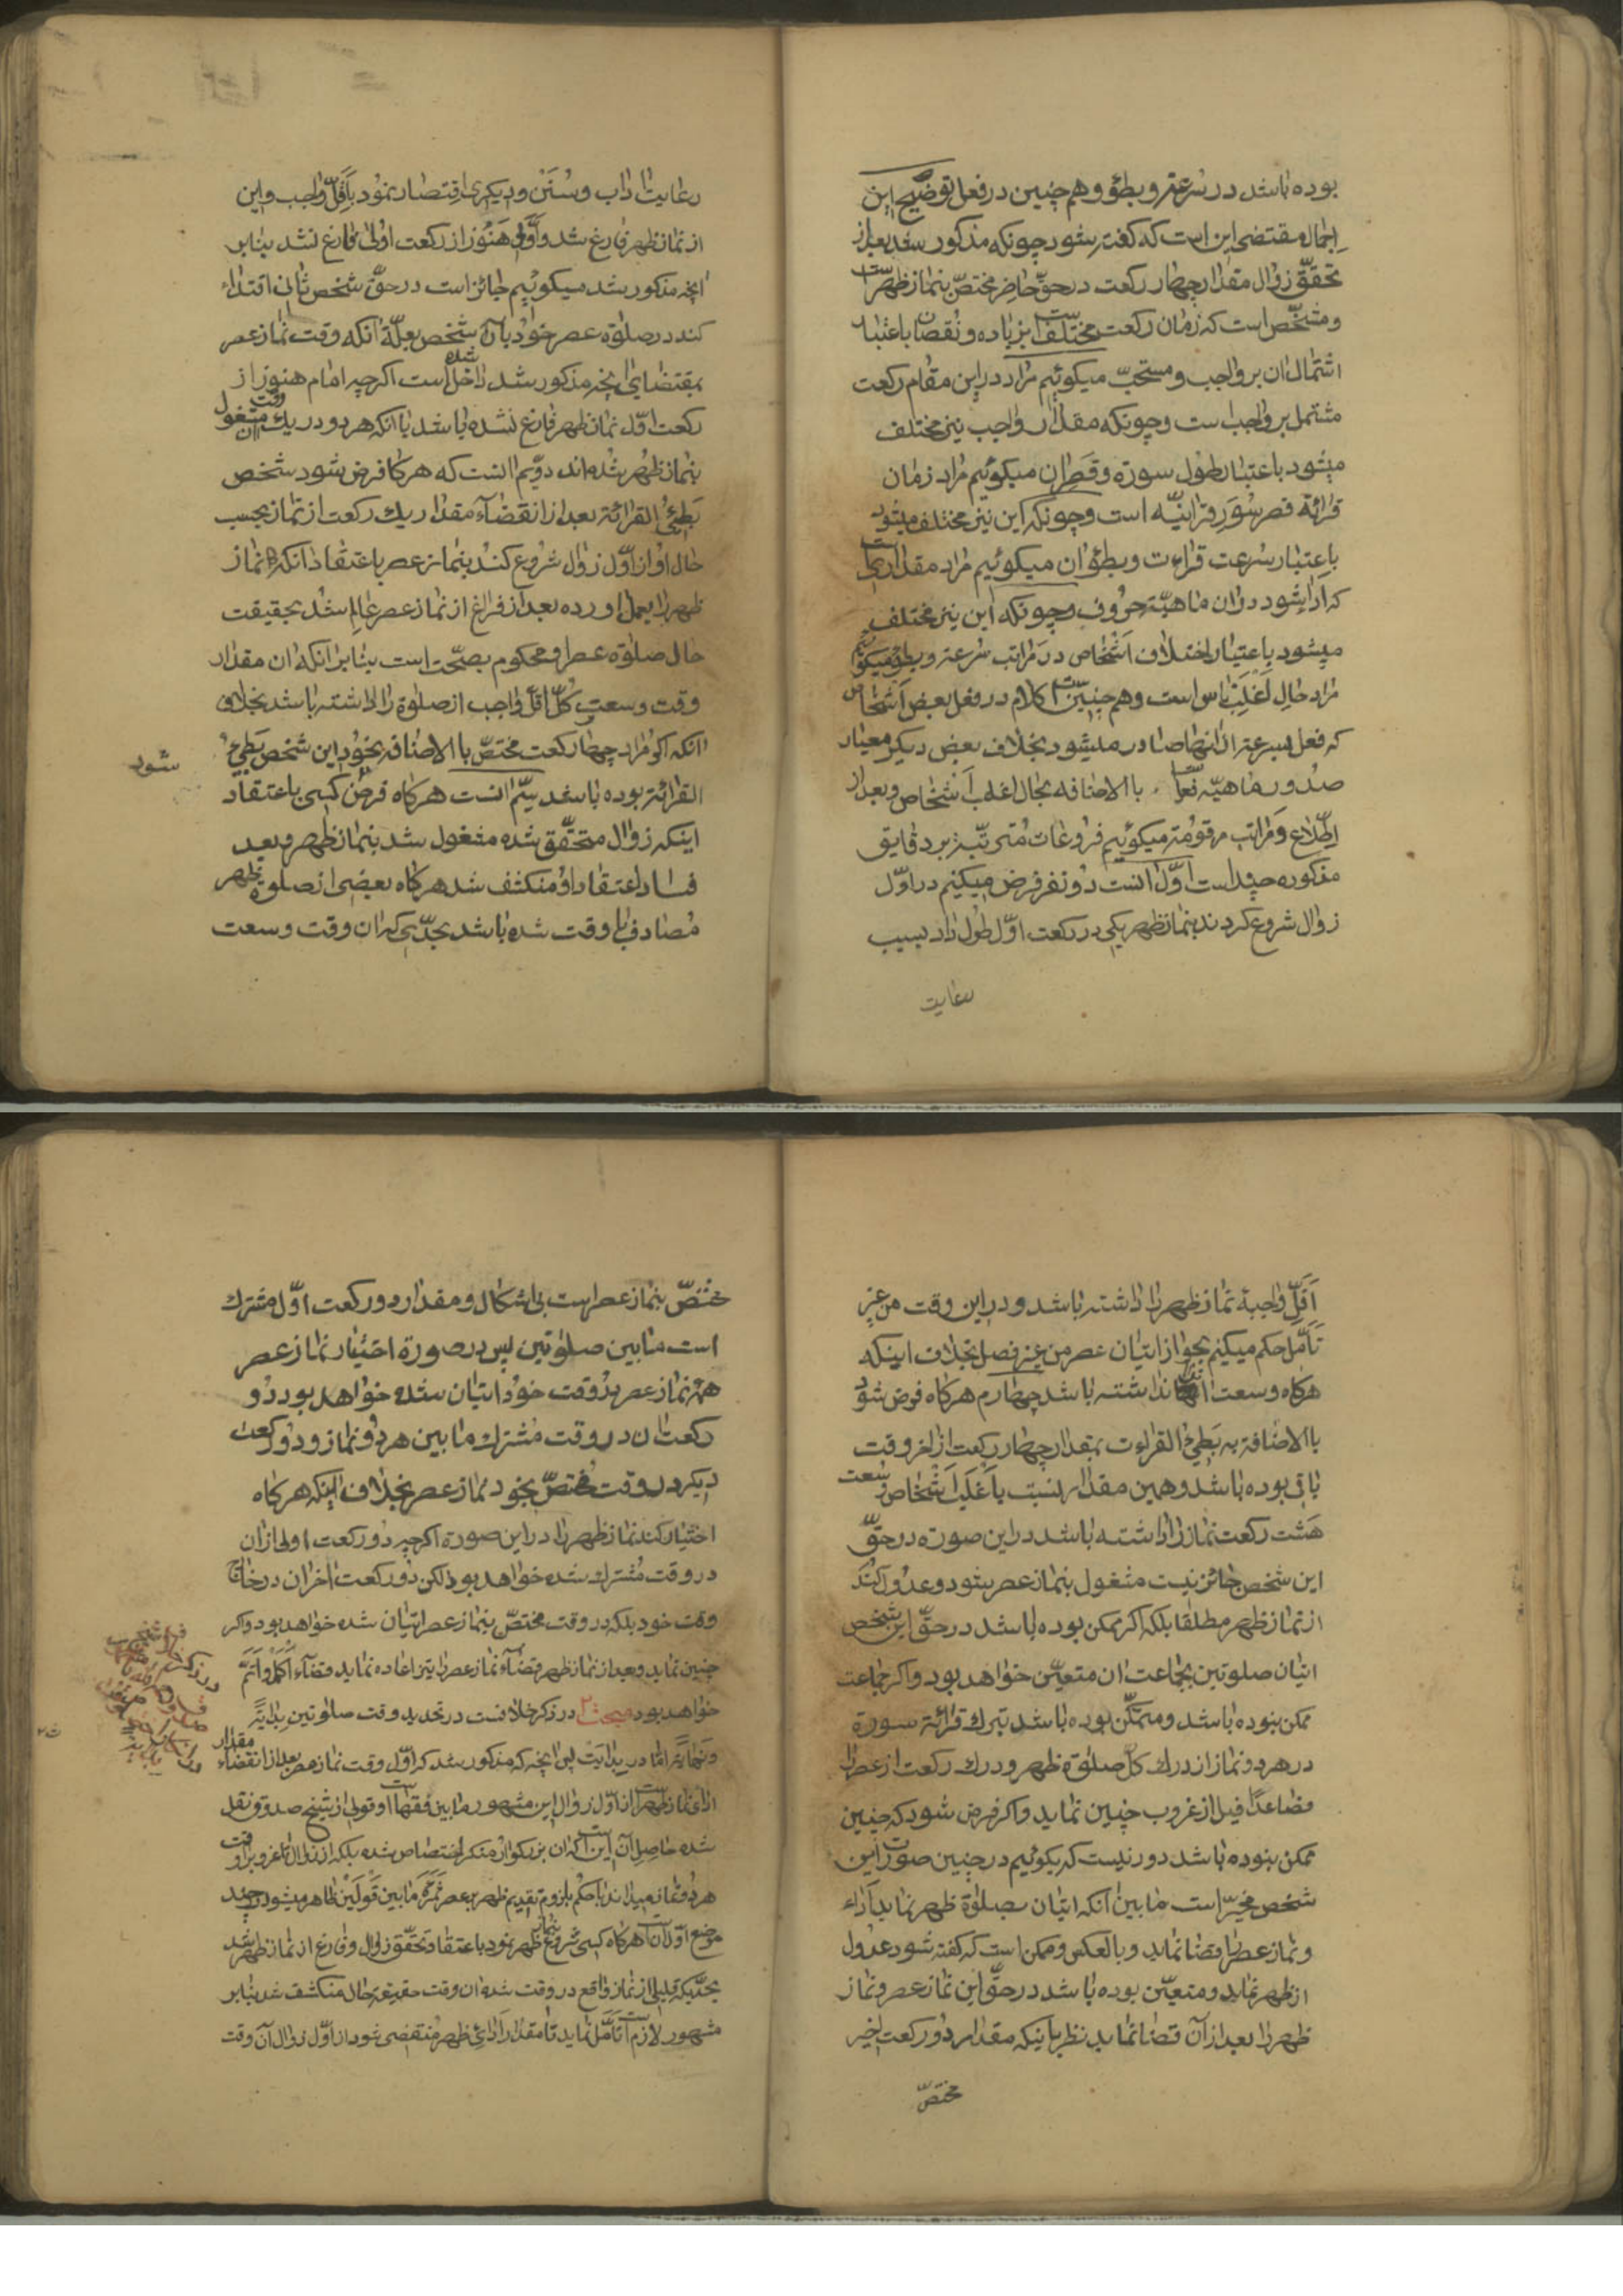 بوده باشد در سرعة و بطؤ و هم چنین در فعل توضیح این
اجمال مقتضی این است که گفته شود چونکه مذکور شد بعد از
تحقّق زوال مقدار چهار رکعت در حقّ حاضر مختصّ بنماز ظهر است
و مشخّص است که زمان رکعت مختلف است بزیاده و نقصان باعتبار
اشتمال ان بر واجب و مستحبّ میکوئیم مراد در این مقام رکعت
مشتمل بر واجب است و چونکه مقدار واجب نیز مختلف
میشود باعتبار طول سورة و قصر ان میکوئیم مراد زمان
قرائة قصر سُوَر قرانیّه است و چونکه این نیز مختلف میشود
باعتبار سرعت قراءت و بطؤ ان میکوئیم مراد مقداریست
که ادا شود در ان ماهیّة حروف و چونکه این نیز مختلف
میشود باعتبار اختلاف اشخاص در مراتب سرعة و بطؤ میکوئیم
مراد حال اغلب ناس است و هم چنین است کلام در فعل بعض اشخاص
که فعل بسرعة از انها صادر میشود بخلاف بعض دیکر معیار
صدور ماهیّه فعل است باالاضافه بحال اغلب اشخاص و بعد از
اطّلاع و مراتب مرقومة میکوئیم فروعات مترتّبه بر دقایق
مذکوره چند است اوّل انست دو نفر فرض میکنیم در اوّل
زوال شروع کردند بنماز ظهر یکی در رکعت اوّل طول داد بسبب
رعایت
رعایت اداب و سُنَن و دیکری اقتصار نمود باقلّ واجب و این
از نماز ظهر فارغ شد و اوّلی هنوز از رکعت اولی فارغ نشد بنابر
انچه مذکور شد میکوئیم جائز است در حقّ شخص ثانی اقتداء
کند در صلوة عصر خود بآن شخص بعلّة انکه وقت نماز عصر
بمقتضای انچه مذکور شد داخل شده است اکرچه امام هنوز از
رکعت اوّل نماز ظهر فارغ نشده باشد با انکه هر دو در یک وقت مشغول
بنماز ظهر شده اند دوّیم انست که هر کاه فرض شود شخص
بَطیُ القرائة بعد از انقضآء مقدار یک رکعت از نماز بحسب
حال او از اوّل زوال شروع کند بنماز عصر باعتقاد انکه نماز
ظهر را بعمل اورده بعد از فراغ از نماز عصر عالم شد بحقیقت
حال صلوة عصر او محکوم بصحّت است بنابر انکه ان مقدار
وقت وسعت کلّ اقلّ واجب از صلوة را داشته باشد بخلاف
انکه اکر مراد چهار رکعت مختصّ باالاضافه بخود این شخص بَطیُ
شود
القرائة بوده باشد سیّم انست هرکاه فرض کسی باعتقاد
اینکه زوال متحقّق شده مشغول شد بنماز ظهر و بعد
فساد اعتقاد او منکشف شد هرکاه بعضی از صلوة ظهر
مصادف با وقت شده باشد بحدّی که ان وقت وسعت
اقلّ واجبهٔ نماز ظهر را داشته باشد و در این وقت من غیر
تأمّل حکم میکنیم بجواز اتیان عصر من غیر فصل بخلاف اینکه
هرکاه وسعت انرا نداشته باشد چهارم هرکاه فرض شود
باالاضافة به بَطیُ القراءت بمقدار چهار رکعت از اخر وقت
باقی بوده باشد و همین مقدار بنسبت باغلب اشخاص وسعت
هشت رکعت نماز را داشته باشد در این صورة در حقّ
این شخص جائز نیست مشغول بنماز عصر شود و عدول کند
از نماز ظهر مطلقا بلکه اکر ممکن بوده باشد در حقّ این شخص
اتیان صلوتین بجماعت ان متعیّن خواهد بود و اکر جماعت
ممکن نبوده باشد و متمکّن بوده باشد بترک قرائة سورة
در هر دو نماز از درک کلّ صلوة ظهر و درک رکعت از عصر را
فصاعداً قبل از غروب چنین نماید و اکر فرض شود که چنین
ممکن نبوده باشد دور نیست که بکوئیم در چنین صورت این
شخص مخیّر است مابین انکه اتیان بصلوة ظهر نماید اداء
و نماز عصر را قضا نماید و بالعکس و ممکن است که کفته شود عدول
از ظهر نماید و متعیّن بوده باشد در حقّ این نماز عصر و نماز
ظهر را بعد از آن قضا نماید نظر باینکه مقدار دو رکعت اخیر
مختصّ
مختصّ بنماز عصر است بی اشکال و مقدار دو رکعت اوّل مشترک
است مابین صلوتین پس در صورة اختیار نماز عصر
همه نماز عصر در وقت خود اتیان شده خواهد بود دو
رکعت ان در وقت مشترک مابین هر دو نماز و دو رکعت
دیکر در وقت مختصّ بخود نماز عصر بخلاف اینکه هرکاه
اختیار کند نماز ظهر را در این صورة اکرچه دو رکعت اولی از ان
در وقت مشترک شده خواهد بود لکن دو رکعت اخر ان در خارج
وقت خود بلکه در وقت مختصّ بنماز عصر اتیان شده خواهد بود و اکر
چنین نماید و بعد از نماز ظهر قضآء نماز عصر را نیز اعاده نماید قضآء اکمل و اتمّ
خواهد بود مبحث ۲ در ذکر خلافست در تحدید وقت صلوتین بدایةً
و نهایةً امّا در بدایت پس انچه که مذکور شد که اوّل وقت نماز عصر بعد از انقضاء مقدار
ادای نماز ظهر است از اوّل زوال این مشهور مابین فقها است و قولی از شیخ صدوق نقل
شده حاصل آن این است که ان بزرکوار منکر اختصاص شده بلکه از زوال تا غروب را وقت
هر دو نماز میداند با حکم بلزوم تقدیم ظهر بر عصر ثمره مابین قولین ظاهر میشود در چند
موضع اوّل آن است هرکاه کسی شروع بنماز ظهر نمود باعتقاد تحقّق زوال و فارغ از نماز ظهر شد
بحدّیکه قلیلی از نماز واقع در وقت شده ان وقت حقیقة حال منکشف شد بنابر
مشهور لازم است تأمّل نماید تا مقدار ادای ظهر منقضی شود از اوّل زوال آن وقت